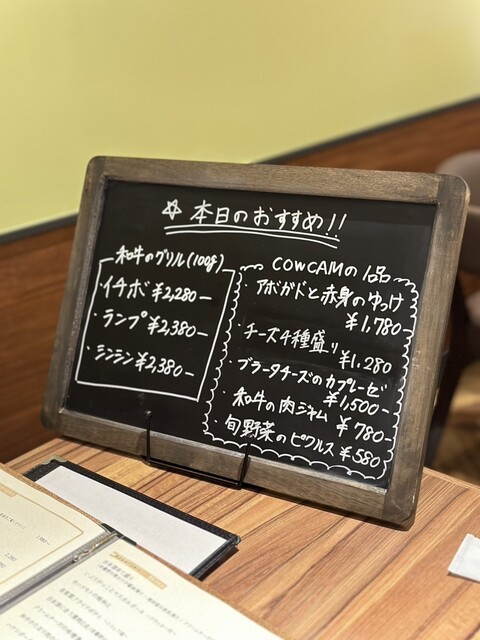 ☆本日のおすすめ!!
和牛のグリル(100g)
・イチボ ¥2,280-
・ランプ ¥2,380-
・シンシン ¥2,380-
COWCAMの1品
・アボガドと赤身のゆっけ
¥1,780-
・チーズ4種盛り
¥1,280
・ブラータチーズのカプレーゼ
¥1,500-
・和牛の肉ジャム ¥780-
・旬野菜のピクルス ¥580